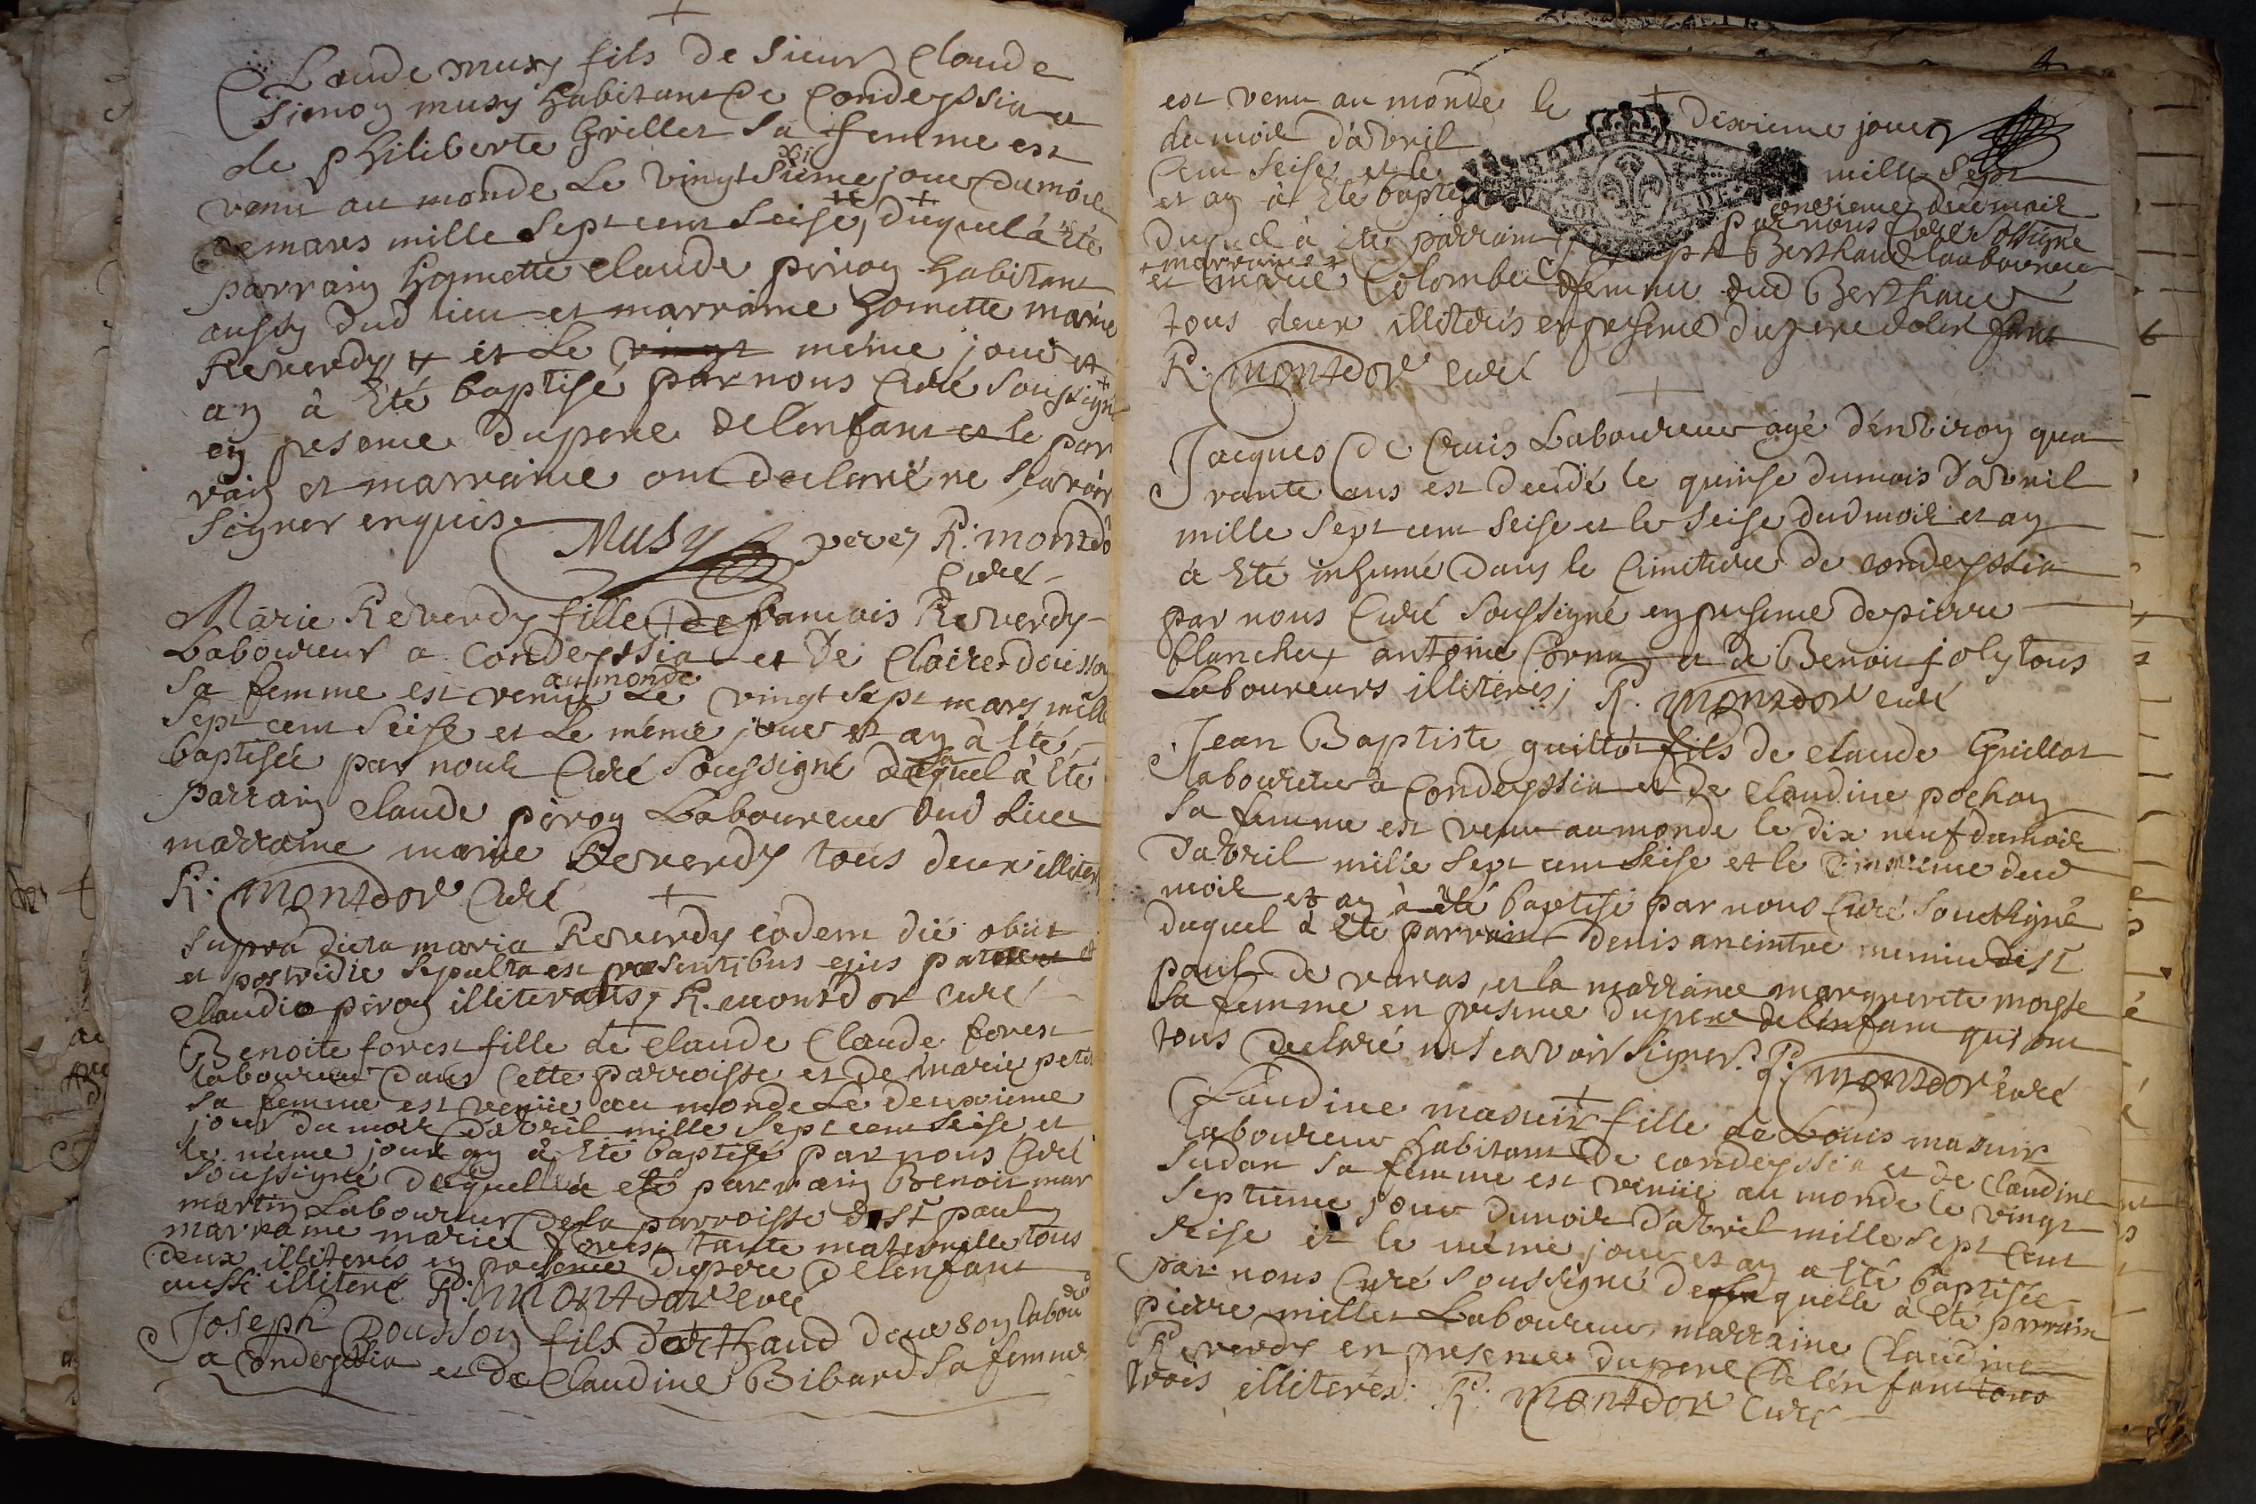 Claude musy fils de sieur Claude
simon musy habitant de Condeyssia et
de philiberte Grillet sa femme est
venu au monde Le vingt sixime jour du mois
de mars mille sept cent seise, duquel à été
parrain honnette Claude piron habitant
aussy dud lieu et marraine honnette marie
Reverdy et Le vingt même jour et
an à été baptisé par nous Curé soussigné
en presence du pere de l'enfant et le par
rain et marraine ont declaré ne scavoir
signer enquis.
Musy pere R: montdor
Curé
Marie Reverdy fille de francois Reverdy
Laboureur a Condeyssia et de Claire douisson
au monde
sa femme est venue Le vingt sept mars mille
sept cent seise et Le même jour et an à été
baptisée par nous Curé soussigné duquel à été
parrain Claude piron Laboureur dud Lieu
marraine marie Reverdy tous deux illiteres
R: montdor Curé
supra dicta maria Reverdy eodem dié obiit
et postridie sepulta est præsentibus ejus patre et
Claudio piron illiteratis, R. montdor Curé
Benoite forest fille de Claude Claude forest
laboureur dans Cette parroisse et de marie petit
sa femme est venüe au monde Le deuxieme
jour du mois d'avril mille sept cent seise et
le même jour an à été baptisé par nous Curé
soussigné de quelle à eté parrain Benoit mar
martin Laboureur de la parroisse de st paul
marraine marie forest tante maternelle tous
deux illiteres en presence du pere de l'enfant
aussi illiteré R: montdor curé
Joseph Bousson fils d'arthaud douson labou
a Condeyssia et de Claudine Bibard sa femme
est venu au monde le dixieme jour
du mois d'avril mille sept
Cent seise et le onzieme du mois
et an à été baptisé par nous Curé soussigné
duquel à été parrain Joseph Berthaud laboureur
marraine
et marie Colomber femme dud Berthaud
tous deux illiterés en presence du pere de l'enfant
R: montdor curé
Jacques De Cruis Laboureur agé d'environ qua
rante ans est decidé le quinse du mois d'avril
mille sept cent seise et le seise dud mois et an
à été inhumé dans le Cimitiere de condeyssia
par nous Curé soussigné en presence de pierre
blanchet antoine Cornu et de Benoit joly tous
Laboureurs illiterés, R. montdor curé
Jean Baptiste guillot fils de claude Guillot
laboureur à Condeyssia et de Claudine pochon
sa femme est venu au monde le dix neuf du mois
d'avril mille sept cent seise et le dud
mois et an à été baptisé par nous Curé soussigné
duquel à été parrain denis de st
paul de varas, et la marraine marguerite
sa femme en presence du pere de l'enfant qui ont
tous declaré ne scavoir signer. R: montdor curé
Claudine masuir fille de Louis masuir
laboureur habitant de condeyssia et de Claudine
sudan sa femme est venüe au monde le vingt
septieme jour du mois d'avril mille sept Cent
seise et le même jour et an a été baptisée
par nous Curé soussigné de la quelle à été parrain
pierre millet Laboureur, marraine Claudine
Reverdy en presence du pere de l'enfant tous
trois illiterés. R: montdor Curé